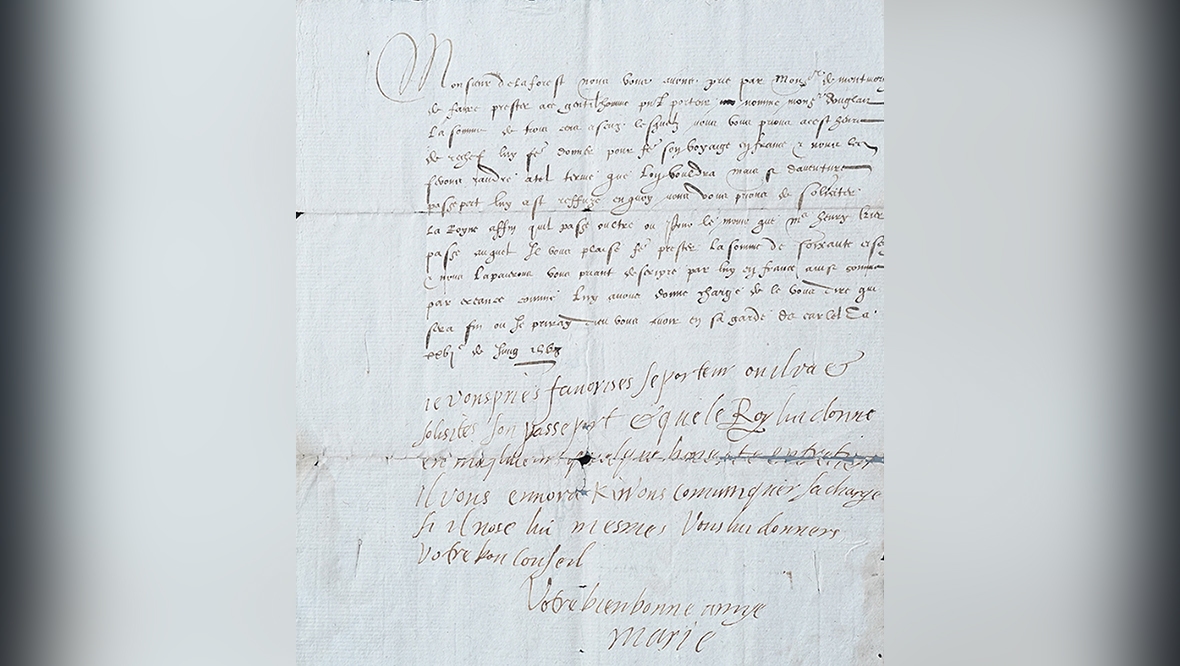 Monsieur de la forest nous vous avons prie par Mons.r de montmor
de faire prester a ce gentilhomme pnt porteur nomme mons.r Douglas
La somme de trois cens escuz lesquelz nous vous prions a cest heure
de rechef luy fe donner pour fe son voyaige en france & nous les
ferons randre a tel terme que Loy vouldra mais si daventure
passeport luy est reffuze en quoy nous vous prions de soliciter
La Royne affin quil passe oultre ou pour le moins que m.e henry
passe auquel Il vous plaise fe prester La somme de soixante
& nous La paierons vous priant descripre par luy en france ainsi comme
par creance comme Luy avons donne charge de le vous dire qui
sera fin ou Je priray Dieu vous avoir en sa garde De carlel Ce
xxvj.e de Juing 1568
ie vous pries favorises se porteur ou il va &
solisites son passeport & que le Roy lui donne
quelque bon
il vous comuniquer sa charge
si il nose lui mesmes Vous lui donneres
Votre bon conseil
Votre bien bonne amye
Marie